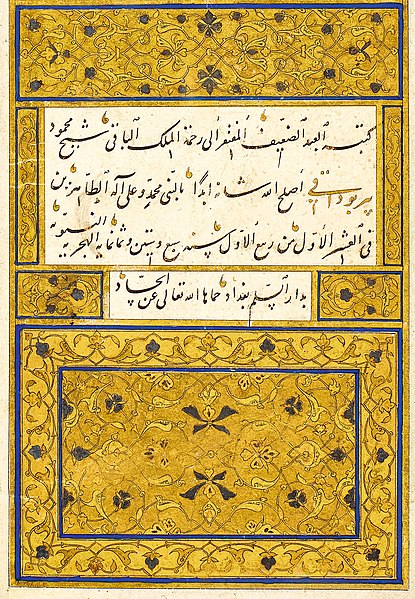 كتبه العبد الضعيف المفتقر الى رحمة الملك الباقي شيخ محمود
پيربوداقي اصلح الله شانه ابدا بالنبي محمد وعلى آله الطاهرين
في العشر الاول من ربيع الاول لسنه سبع وستين وثمانماية الهجرية النبوية
بدار السلم بغداد حماها الله تعالى عن